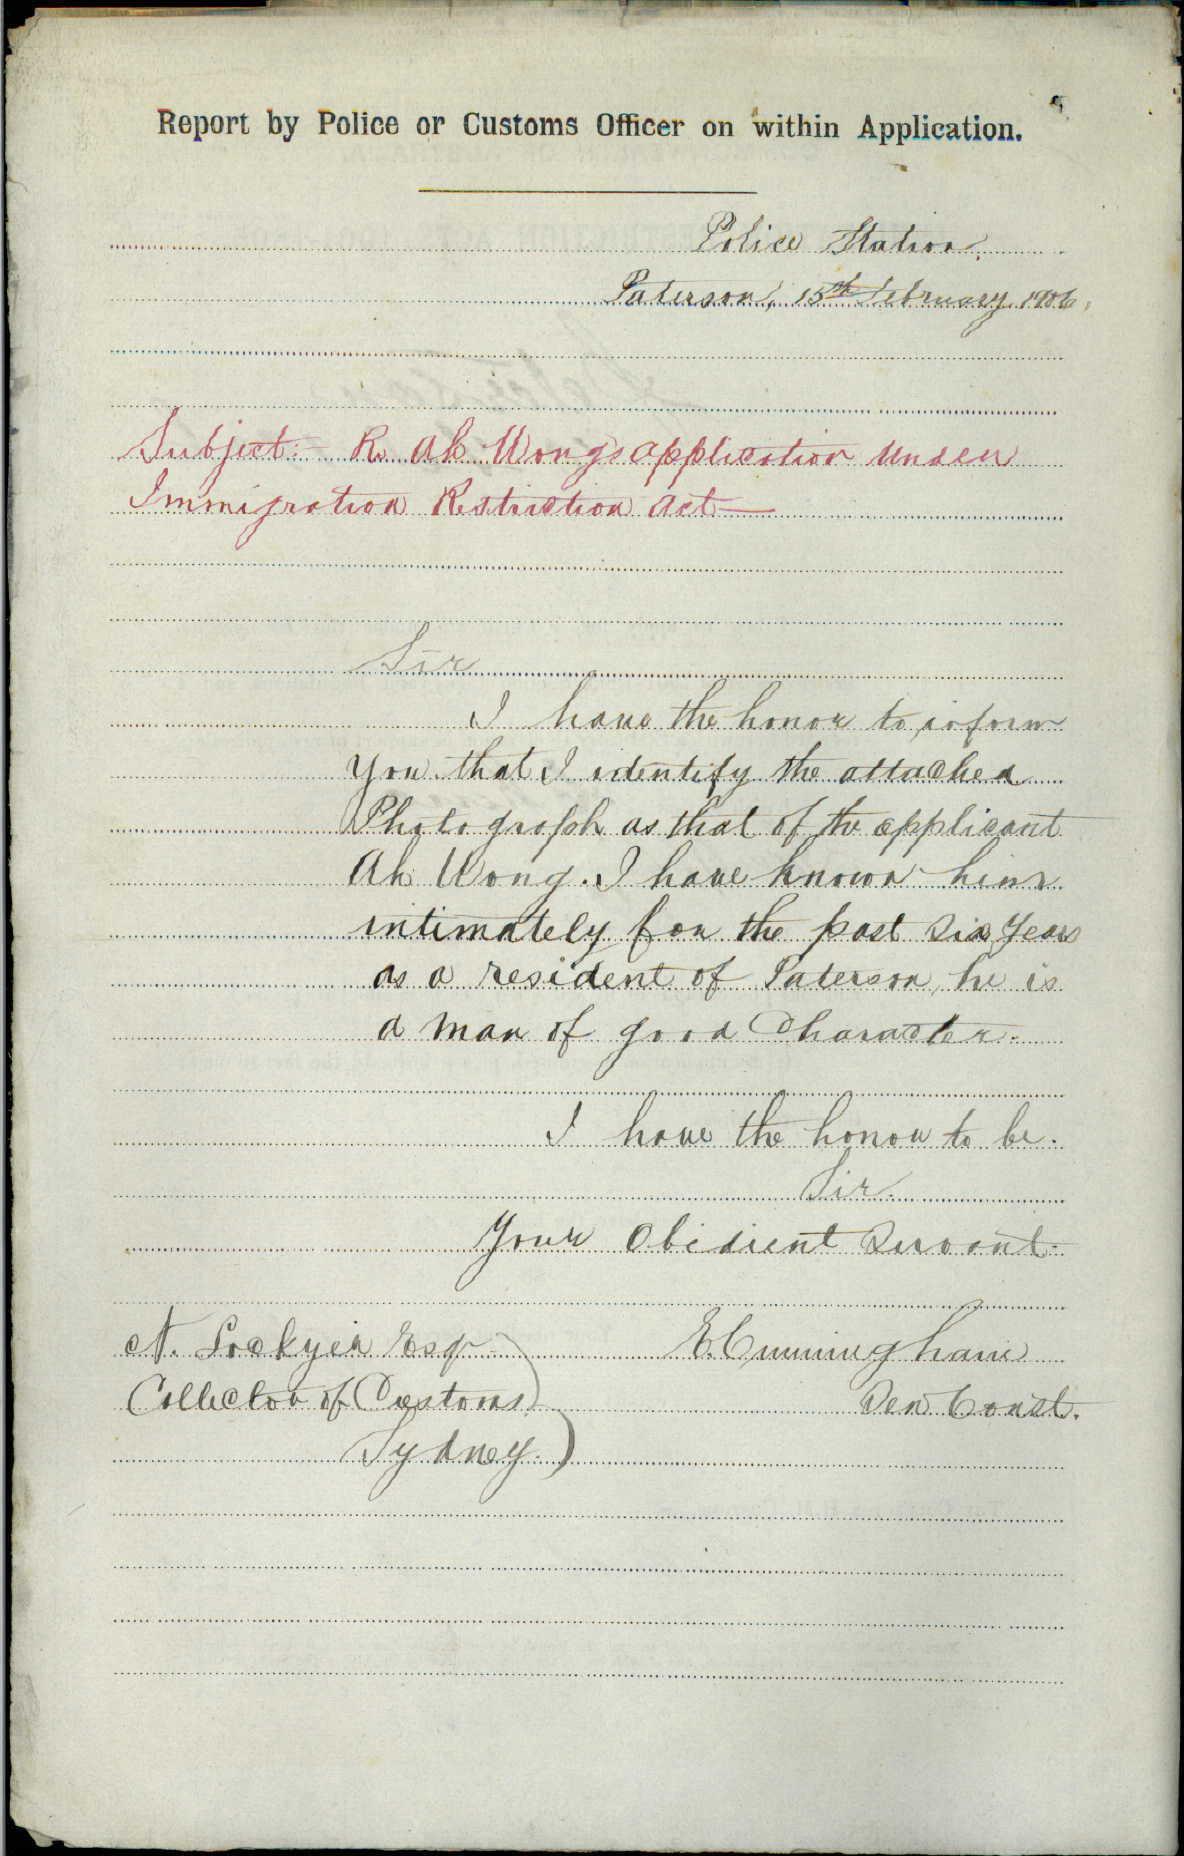 Report by Police or Customs Officer on within Application.
Police Station,
Paterson, 15th February 1906,
Subject:- Re Ah Wongs application under
Immigration Restriction Act—
Sir
I have the honor to inform
you that I identify the attached
Photograph as that of the applicant
Ah Wong. I have known him
intimately for the past six years
as a resident of Paterson, he is
a man of good Character.
I have the honor to be.
Sir.
Your Obidient Servant.
N. Lockyer Esqr
E. Cunningham
Collector of Customs
Sen Const.
Sydney.